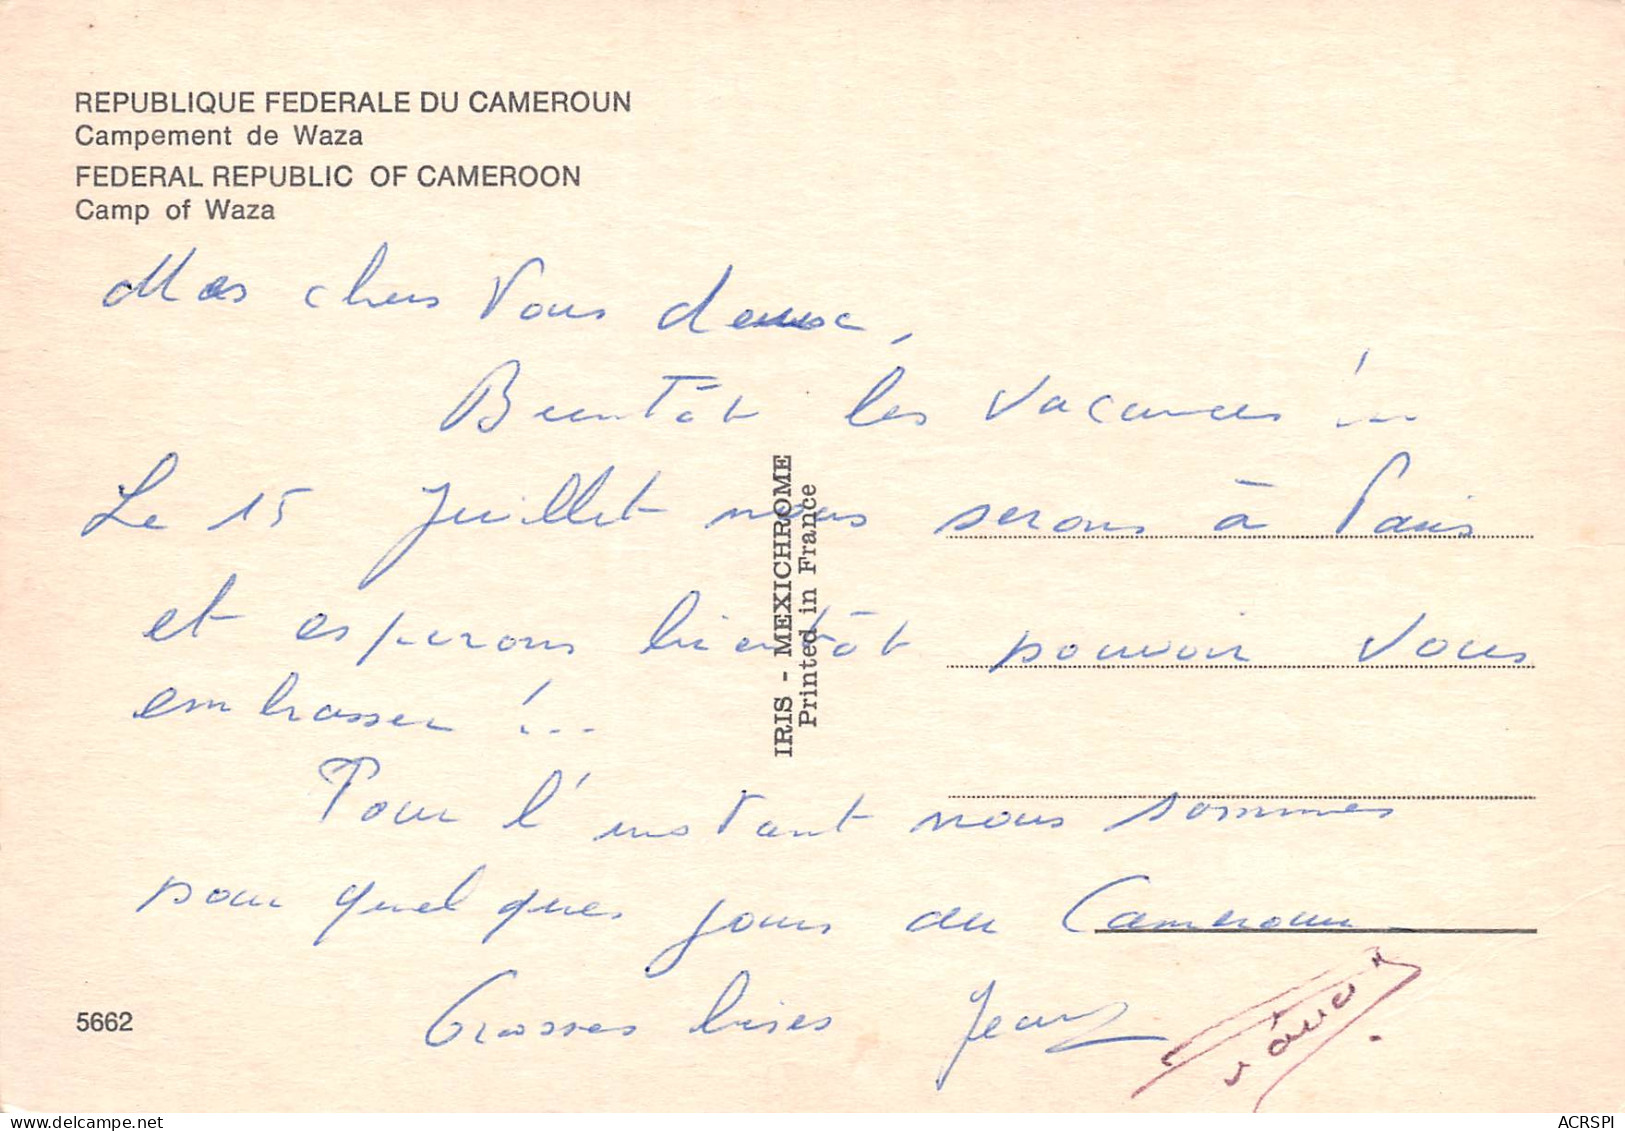 REPUBLIQUE FEDERALE DU CAMEROUN
Campement de Waza
FEDERAL REPUBLIC OF CAMEROON
Camp of Waza
Mes chers Vous deux,
Bientôt les vacances !...
Le 15 Juillet nous serons à Paris
et espérons bientôt pouvoir vous
embrasser !...
Pour l'instant nous sommes
pour quelques jours au Cameroun
Grosses bises Jean
5662
IRIS - MEXICHROME
Printed in France
ACRSPI